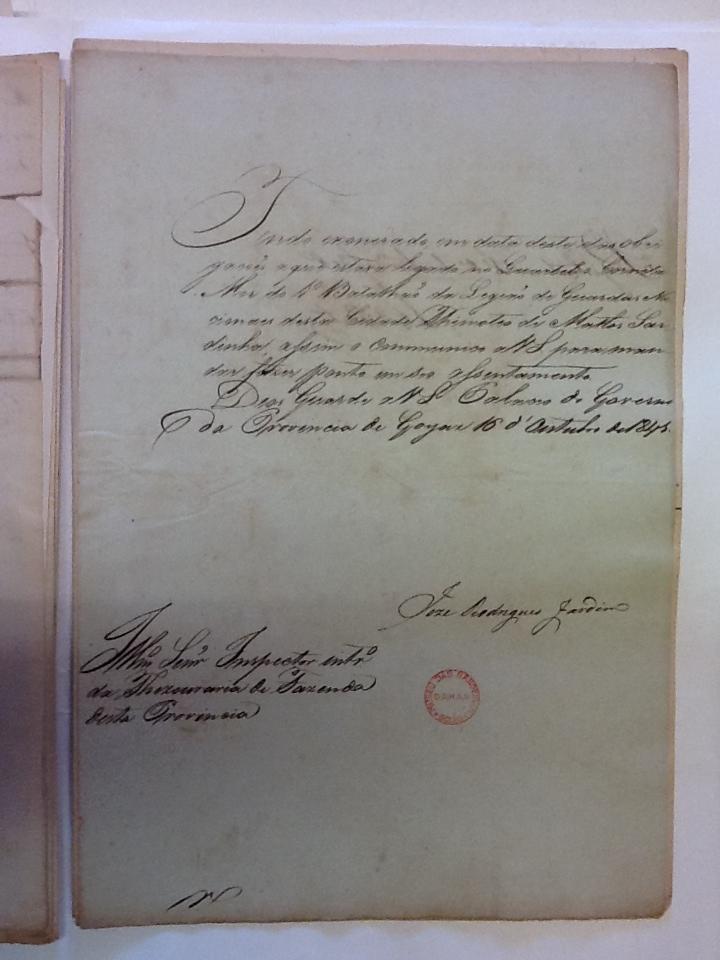 Tendo exonerado em data desta das obri
gaçoẽs a que estava ligado no Quartel o Cornêta
Mor do 1º Batalhaõ da Legiaõ de Guardas Na
cionaes desta Cidade Thimoteo de Mattos Sar
dinha, assim o communico a V S. para man
dar fazer ponto em seo assentamento.
Deos Guarde a V S. Palacio do Governo
da Provincia de Goyaz 16 d'Outubro de 184
Joze Rodrigues Jardim
Illmº Senr Inspector intrº
da Thezouraria de Fazenda
desta Provincia
MUSEU DAS BANDEIRAS